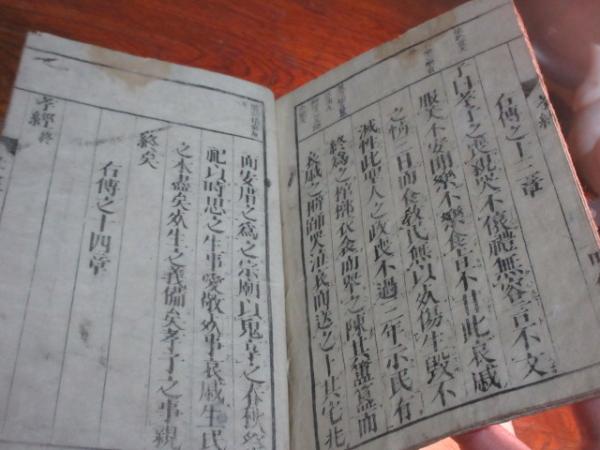 孝經
右傳之十三章
子曰孝子之喪親哭不偯禮無容言不文
服美不安聞樂不樂食旨不甘此哀戚
之情三日而食教民無以死傷生毀不
滅性此聖人之政喪不過三年示民有
終爲之棺槨衣衾而舉之陳其簠簋而
哀戚之擗踊哭泣哀而送之卜其宅兆
而安厝之爲之宗廟以鬼享之春秋祭
祀以時思之生事愛敬死事哀戚生民
之本盡矣死生之義備矣孝子之事親
終矣
右傳之十四章
孝經 終